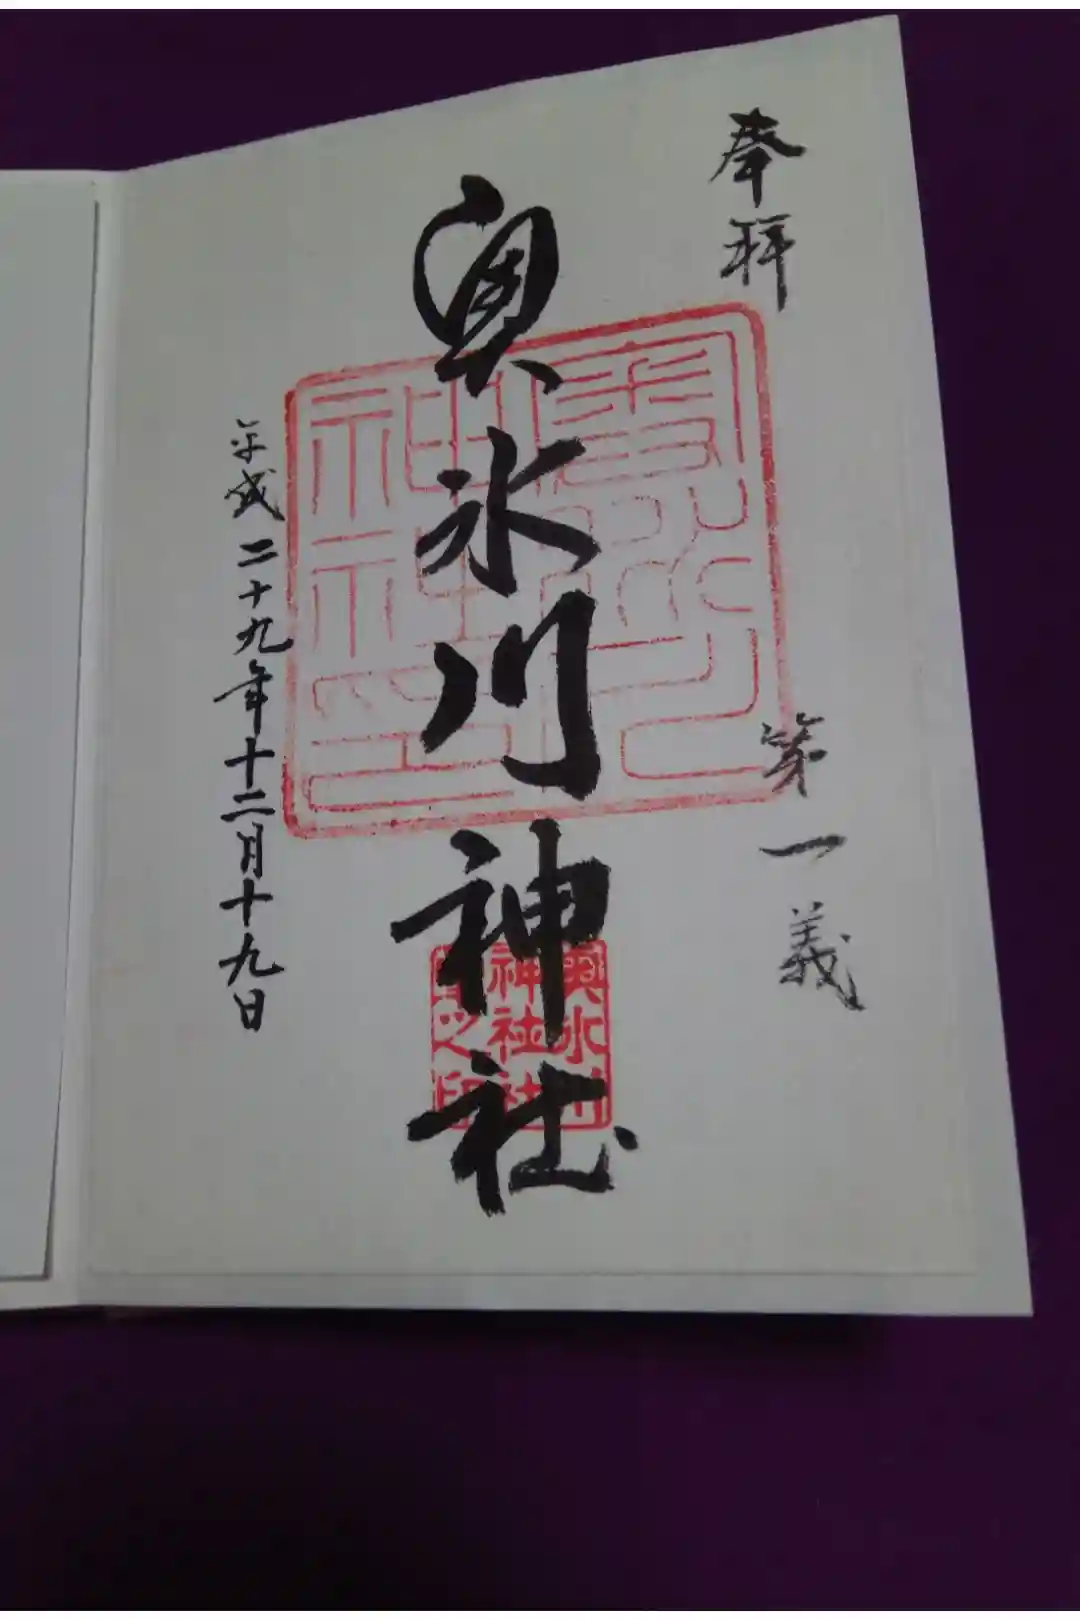 奉拝
第一義
奥氷川神社
平成二十九年十二月十九日
奥氷川
神社社
之印